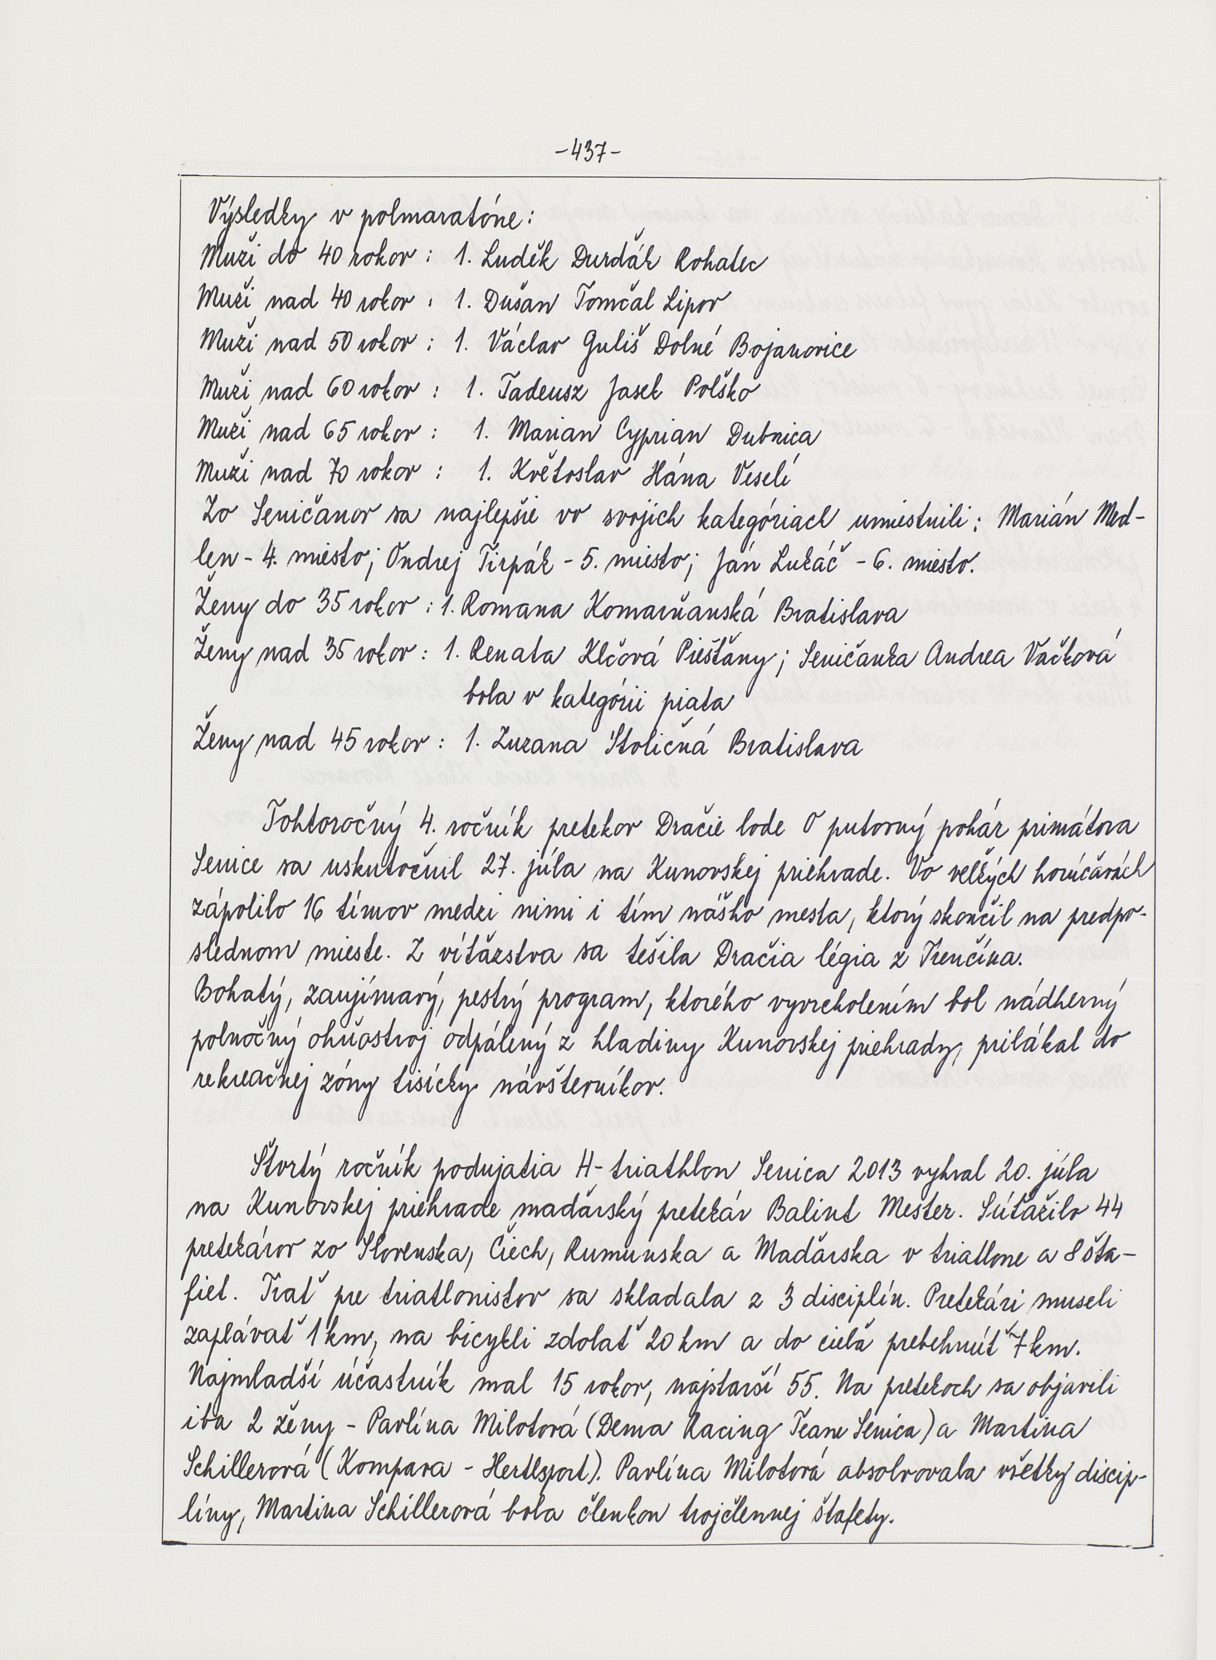 -437-
Výsledky v polmaratóne:
Muži do 40 rokov : 1. Luděk Durďák Rohatec
Muži nad 40 rokov : 1. Dušan Tomčal Lipov
Muži nad 50 rokov : 1. Václav Guliš Dolné Bojanovice
Muži nad 60 rokov : 1. Tadeusz Jasek Poľsko
Muži nad 65 rokov : 1. Marian Cyprian Dubnica
Muži nad 70 rokov : 1. Květoslav Hána Veselí
Zo Seničanov sa najlepšie vo svojich kategóriach umiestnili: Marián Med-
len - 4. miesto; Ondrej Tirpák - 5. miesto; Ján Lukáč - 6. miesto.
Ženy do 35 rokov : 1. Romana Komarňanská Bratislava
Ženy nad 35 rokov : 1. Renata Klčová Piešťany; Seničanka Andrea Vačková
bola v kategórii piata
Ženy nad 45 rokov : 1. Zuzana Stoličná Bratislava
Tohtoročný 4. ročník pretekov Dračie lode O putovný pohár primátora
Senice sa uskutočnil 27. júla na Kunovskej priehrade. Vo veľkých horúčavách
zápolilo 16 tímov medzi nimi i tím nášho mesta, ktorý skončil na predpo-
slednom mieste. Z víťazstva sa tešila Dračia légia z Trenčína.
Bohatý, zaujímavý, pestrý program, ktorého vyvrcholením bol nádherný
polnočný ohňostroj odpálený z hladiny Kunovskej priehrady, prilákal do
rekreačnej zóny tisícky návštevníkov.
Štvrtý ročník podujatia H-triathlon Senica 2013 vyhral 20. júla
na Kunovskej priehrade maďarský pretekár Balint Mester. Súťažilo 44
pretekárov zo Slovenska, Čiech, Rumunska a Maďarska v triatlone a 8 šta-
fiet. Trať pre triatlonistov sa skladala z 3 disciplín. Pretekári museli
zaplávať 1 km, na bicykli zdolať 20 km a do cieľa prebehnúť 7 km.
Najmladší účastník mal 15 rokov, najstarší 55. Na pretekoch sa objavili
iba 2 ženy - Pavlína Milotová (Dema Racing Team Senica) a Martina
Schillerová (Kompava - Hertlsport). Pavlína Milotová absolvovala všetky discip-
líny, Martina Schillerová bola členkou trojčlennej štafety.